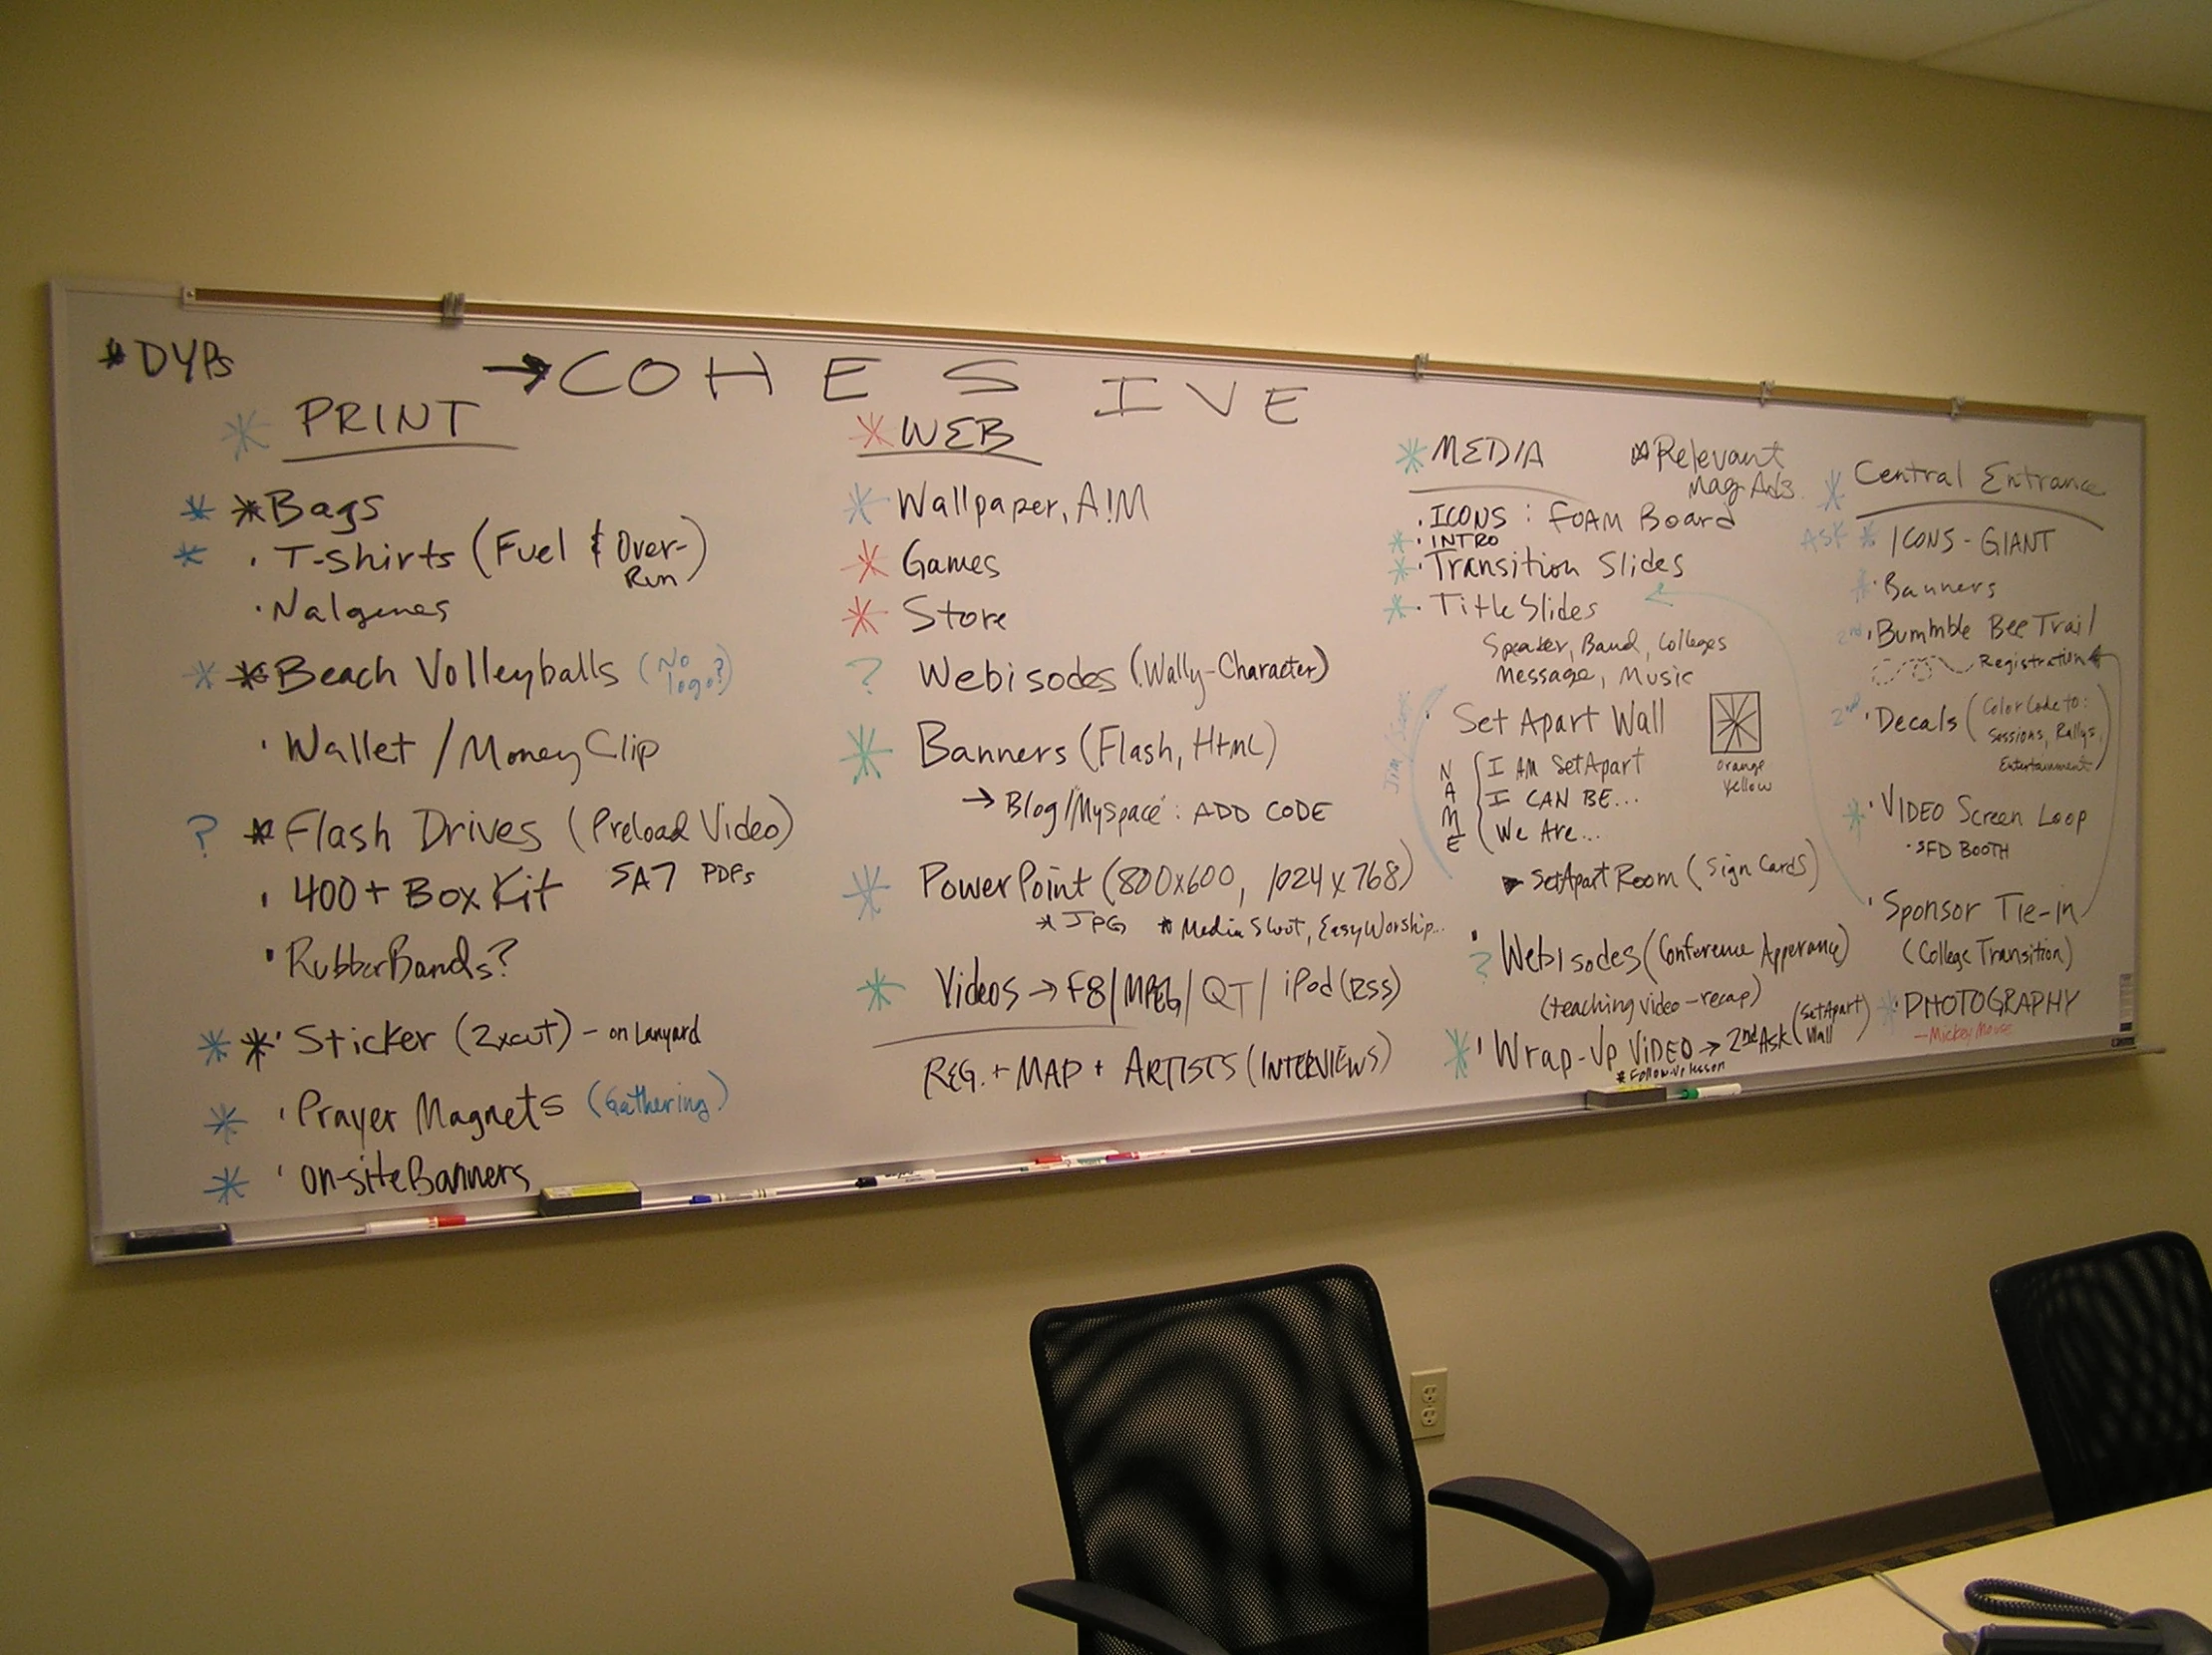 *DYPs
→COHESIVE
* PRINT
* *Bags
* · T-Shirts (Fuel & Over-
Run)
· Nalgenes
* *Beach Volleyballs (No
logo?)
· Wallet / Money Clip
? *Flash Drives (Preload Video)
· 400+ Box Kit SA7 PDFs
· RubberBands?
* *· Sticker (2xcut) - on Lanyard
* · Prayer Magnets (Gathering)
* · on-site Banners
* WEB
* Wallpaper, A!M
* Games
* Store
? Webisodes (Wally-Character)
* Banners (Flash, HtmL)
→ Blog/Myspace: ADD CODE
* PowerPoint (800x600, 1024x768)
* JPG * Media Shout, EasyWorship...
* Videos → F8/MPEG/QT/iPod (RSS)
REG. + MAP + ARTISTS (INTERVIEWS)
* MEDIA
*Relevant
Mag Ads.
· ICONS : FOAM Board
* · INTRO
* · Transition Slides
* · Title Slides
Speaker, Band, Colleges
Message, Music
· Set Apart Wall
orange
yellow
NAME
I AM SetApart
I CAN BE...
We Are...
SetApart Room (Sign Cards)
? · Webisodes (Conference Apperance)
(teaching video-recap)
* · Wrap-Up ViDEO → 2nd Ask (SetApart
Wall
* Follow-up lesson
* Central Entrance
ASK * ICONS - GIANT
* · Banners
2nd · Bummble Bee Trail
Registration
2nd · Decals (Color Code to:
Sessions, Rallys,
Entertainment)
* · VIDEO Screen Loop
· SFD BOOTH
· Sponsor Tie-in
(College Transition)
* · PHOTOGRAPHY
- Mickey Mouse